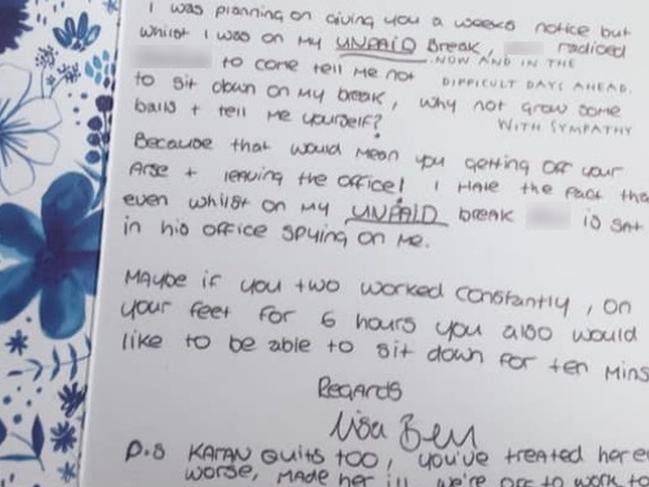 I was planning on giving you a weeks notice but
whilst I was on my UNPAID Break, radioed
to come tell me not
to sit down on my break, why not grow some
balls + tell me yourself?
NOW AND IN THE
DIFFICULT DAYS AHEAD.
WITH SYMPATHY
Because that would mean you getting off your
Arse + leaving the office! I Hate the fact tha
even whilst on my UNPAID break is sat
in his office spying on me.
Maybe if you two worked constantly, on
your feet for 6 hours you also would
like to be able to sit down for ten mins
Regards
P.S Quits too! you've treated here
worse, made her ill we're off to work to